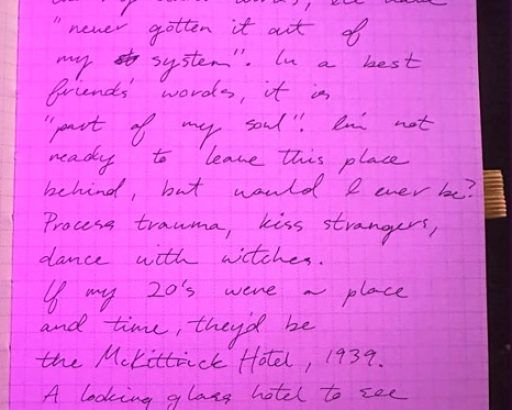 "never gotten it out of
my system". In a best
friends' words, it is
"part of my soul". I'm not
ready to leave this place
behind, but would I ever be?
Process trauma, kiss strangers,
dance with witches.
If my 20's were a place
and time, they'd be
the McKittrick Hotel, 1939.
A looking glass hotel to see